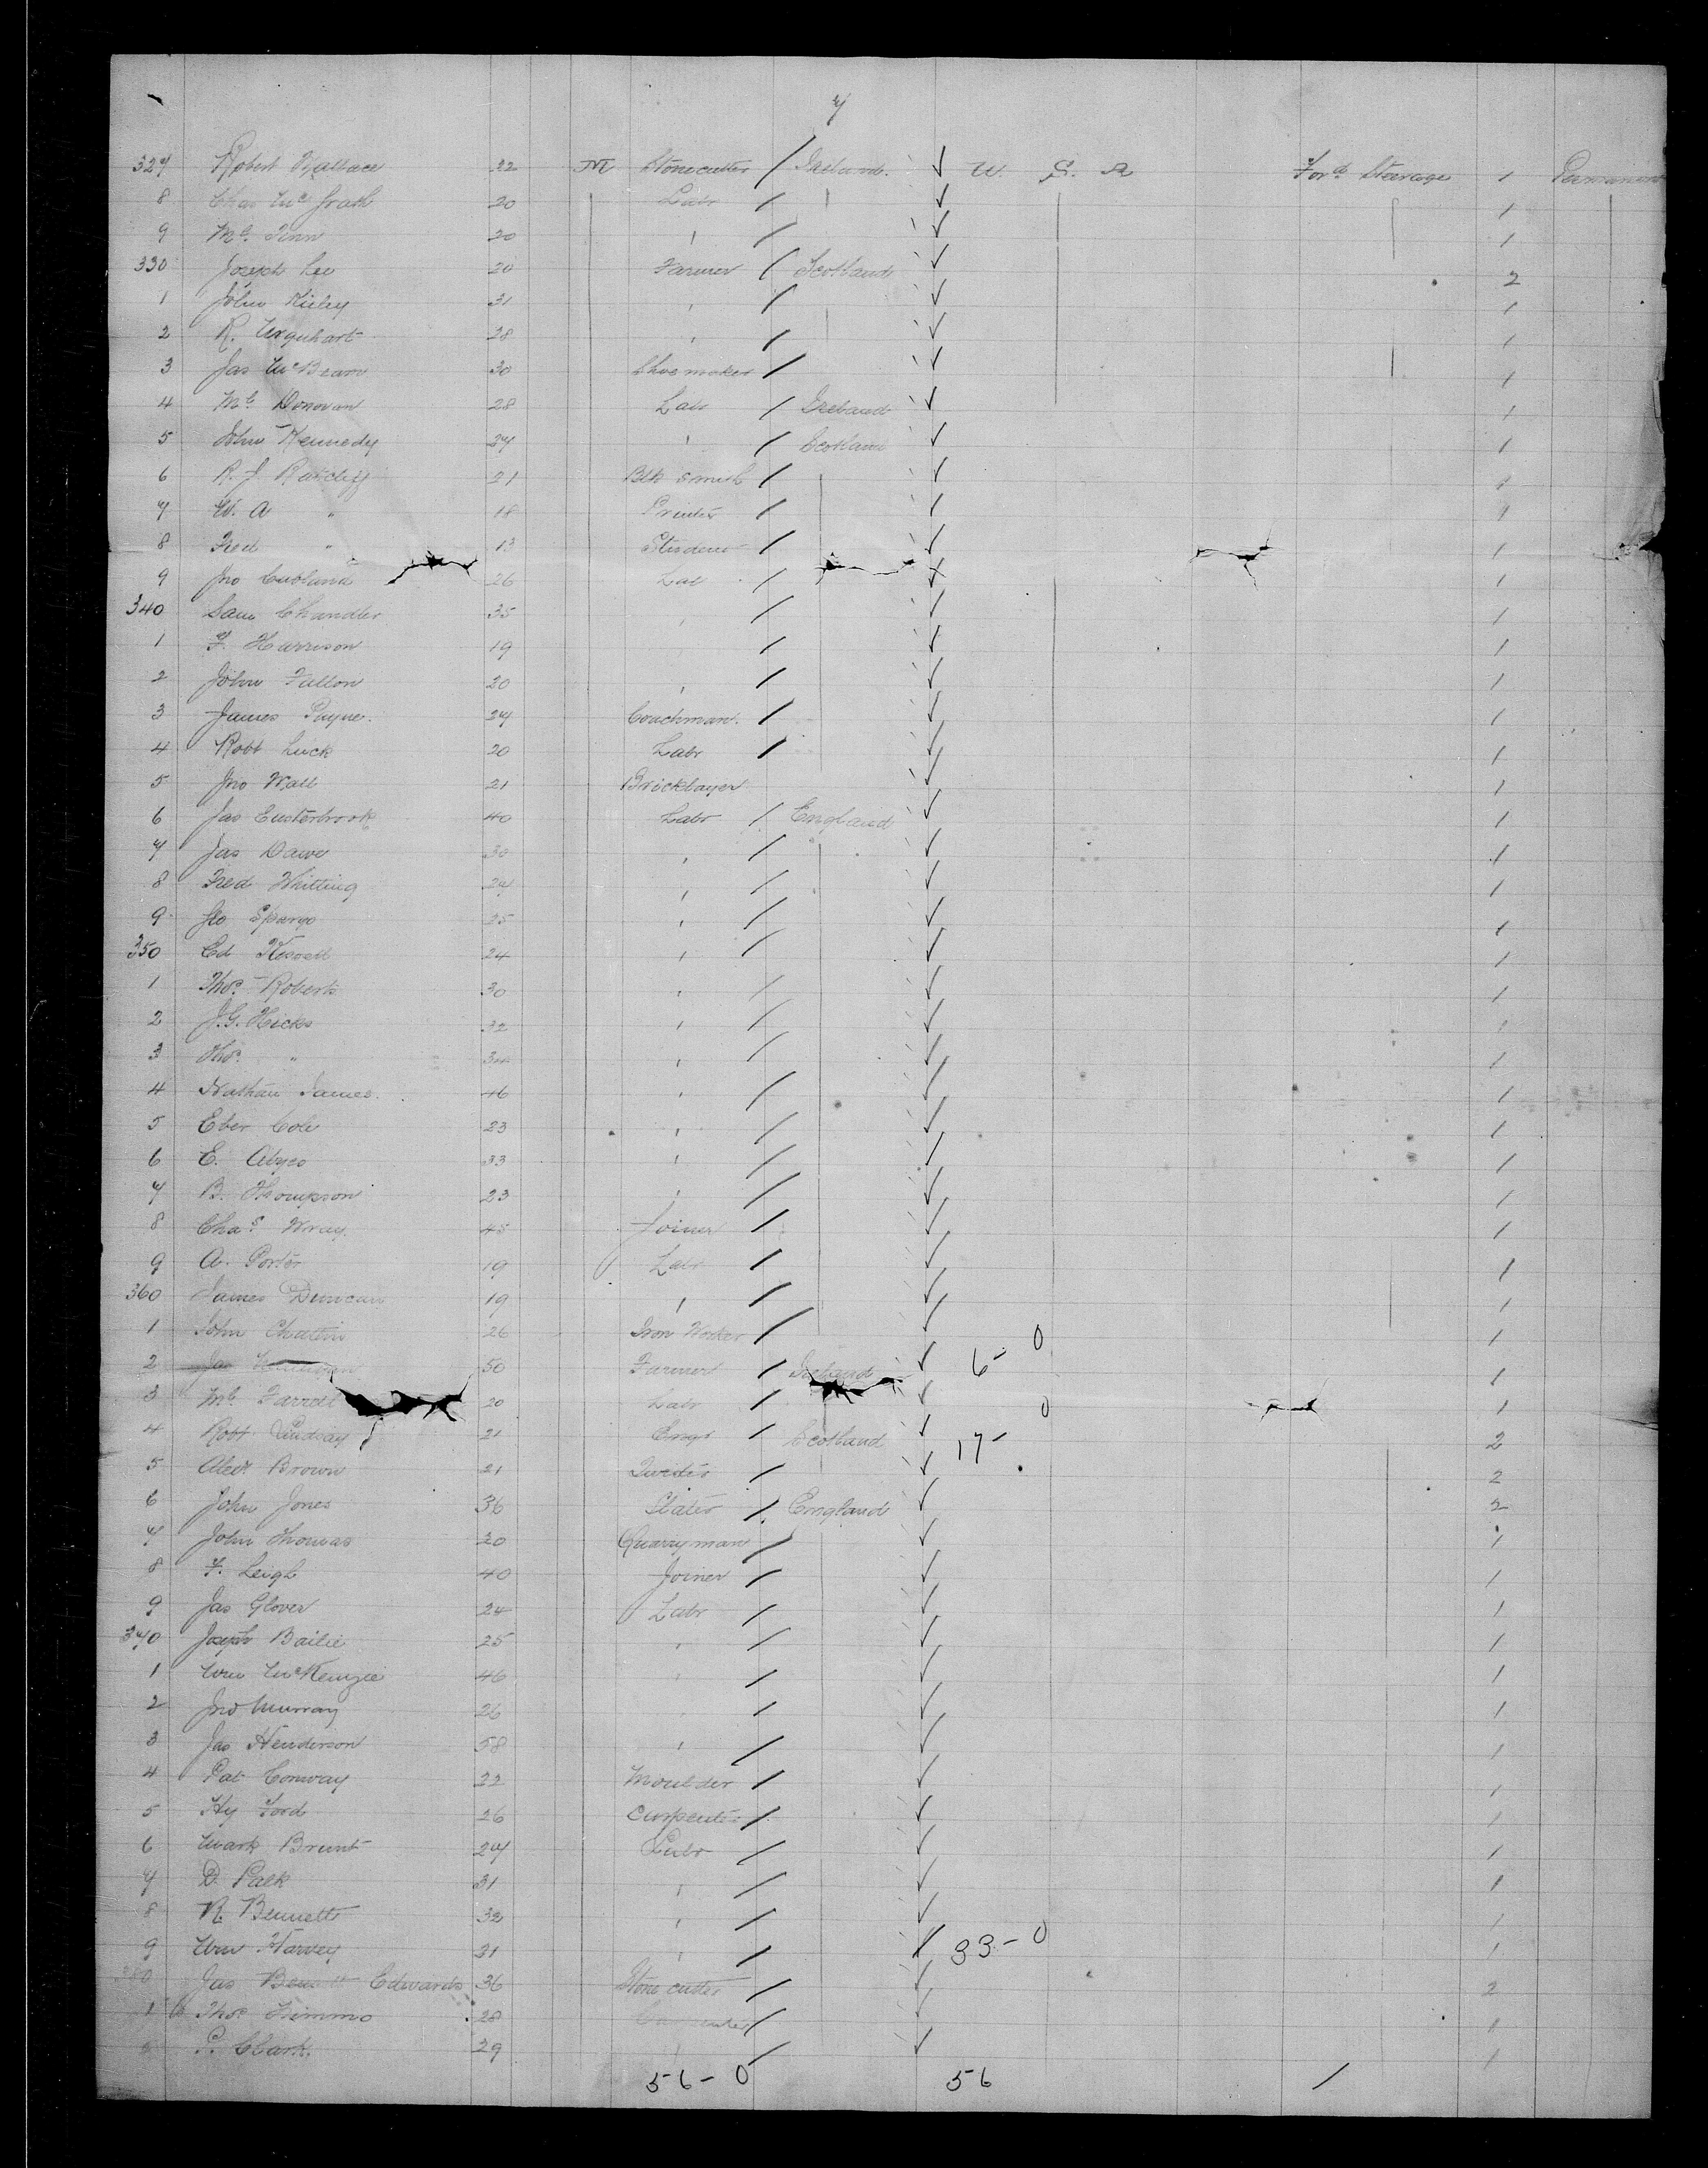 7
327 Robert Wallace 22 M Stonecutter / Ireland. ✓ U. S. A Ford Steerage 1 Permanent
8 Chas McGrath 20 Labr / ✓ 1
9 Ml. Finn 20 " / ✓ 1
330 Joseph Lee 20 Farmer / Scotland ✓ 2
1 John Kieley 31 " / ✓ 1
2 R. Urquhart 28 " / ✓ 1
3 Jas McBean 30 Shoemaker / ✓ 1
4 Ml Donovan 28 Labr / Ireland ✓ 1
5 John Kennedy 27 " / Scotland ✓ 1
6 R. J Ratcliff 21 Blk smith / ✓ 1
7 W. A " 18 Printer / ✓ 1
8 Fred " 13 Student / ✓ 1
9 Jno 26 Lab / ✓ 1
340 Sam Chandler 35 " / ✓ 1
1 F. Harrison 19 / ✓ 1
2 John Fallon 20 " / ✓ 1
3 James Payne. 27 Coachman. / ✓ 1
4 Robt Luck 20 Labr / ✓ 1
5 Jno Wall 21 Bricklayer ✓ 1
6 Jas Easterbrook 40 Labr / England ✓ 1
7 Jas Dawe 30 " / ✓ 1
8 Fred Whitting 27 " / ✓ 1
9 Geo Spargo 25 " / ✓ 1
350 Ed 24 " / ✓ 1
1 Thos. Roberts 30 " / ✓ 1
2 J. G. Hicks 32 " / ✓ 1
3 Thos. " " / ✓ 1
4 Nathan James. 46 " / ✓ 1
5 Eber Cole 23 " / ✓ 1
6 E. 33 " / ✓ 1
7 B. Thompson 23 " / ✓ 1
8 Chas Wray. 45 Joiner / ✓ 1
9 A. Porter 19 Labr / ✓ 1
360 James Duncan 19 " / ✓ 1
1 John 26 Iron Worker / ✓ 0 1
2 Jas 50 Farmer / Ireland ✓ 6- 1
3 Ml. Farrell 20 Labr / ✓ 0 1
4 Robt Lindsay 21 Engr / Scotland ✓ 17- 2
5 Alexr Brown 21 / ✓ 2
6 John Jones 36 Slater / England ✓ 2
7 John Thomas 20 Quarryman / ✓ 1
8 F. Leigh 40 Joiner / ✓ 1
9 Jas Glover 24 Labr / ✓ 1
370 Joseph Bailie 25 " / ✓ 1
1 Wm McKenzie 46 " / ✓ 1
2 Jno Murray 26 " / ✓ 1
3 Jas Henderson 58 " / ✓ 1
4 Pat Conway 22 Moulder / ✓ 1
5 Hy Ford 26 Carpenter / ✓ 1
6 Mark Brunt 27 Labr / ✓ 1
7 D. Palk 31 " / ✓ 1
8 R. Bennetts 32 " / ✓ 1
9 Wm Harvey 31 " / ✓ 33-0 1
380 Jas Edwards 36 Stone cutter / ✓ 2
1 Thos. Kimmo 28 Carpenter / ✓ 1
P. Clark. 29 / ✓ 1
56-0 56 /